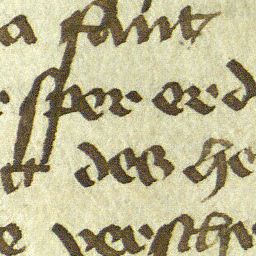 a sant
sper er d
des he
e versch